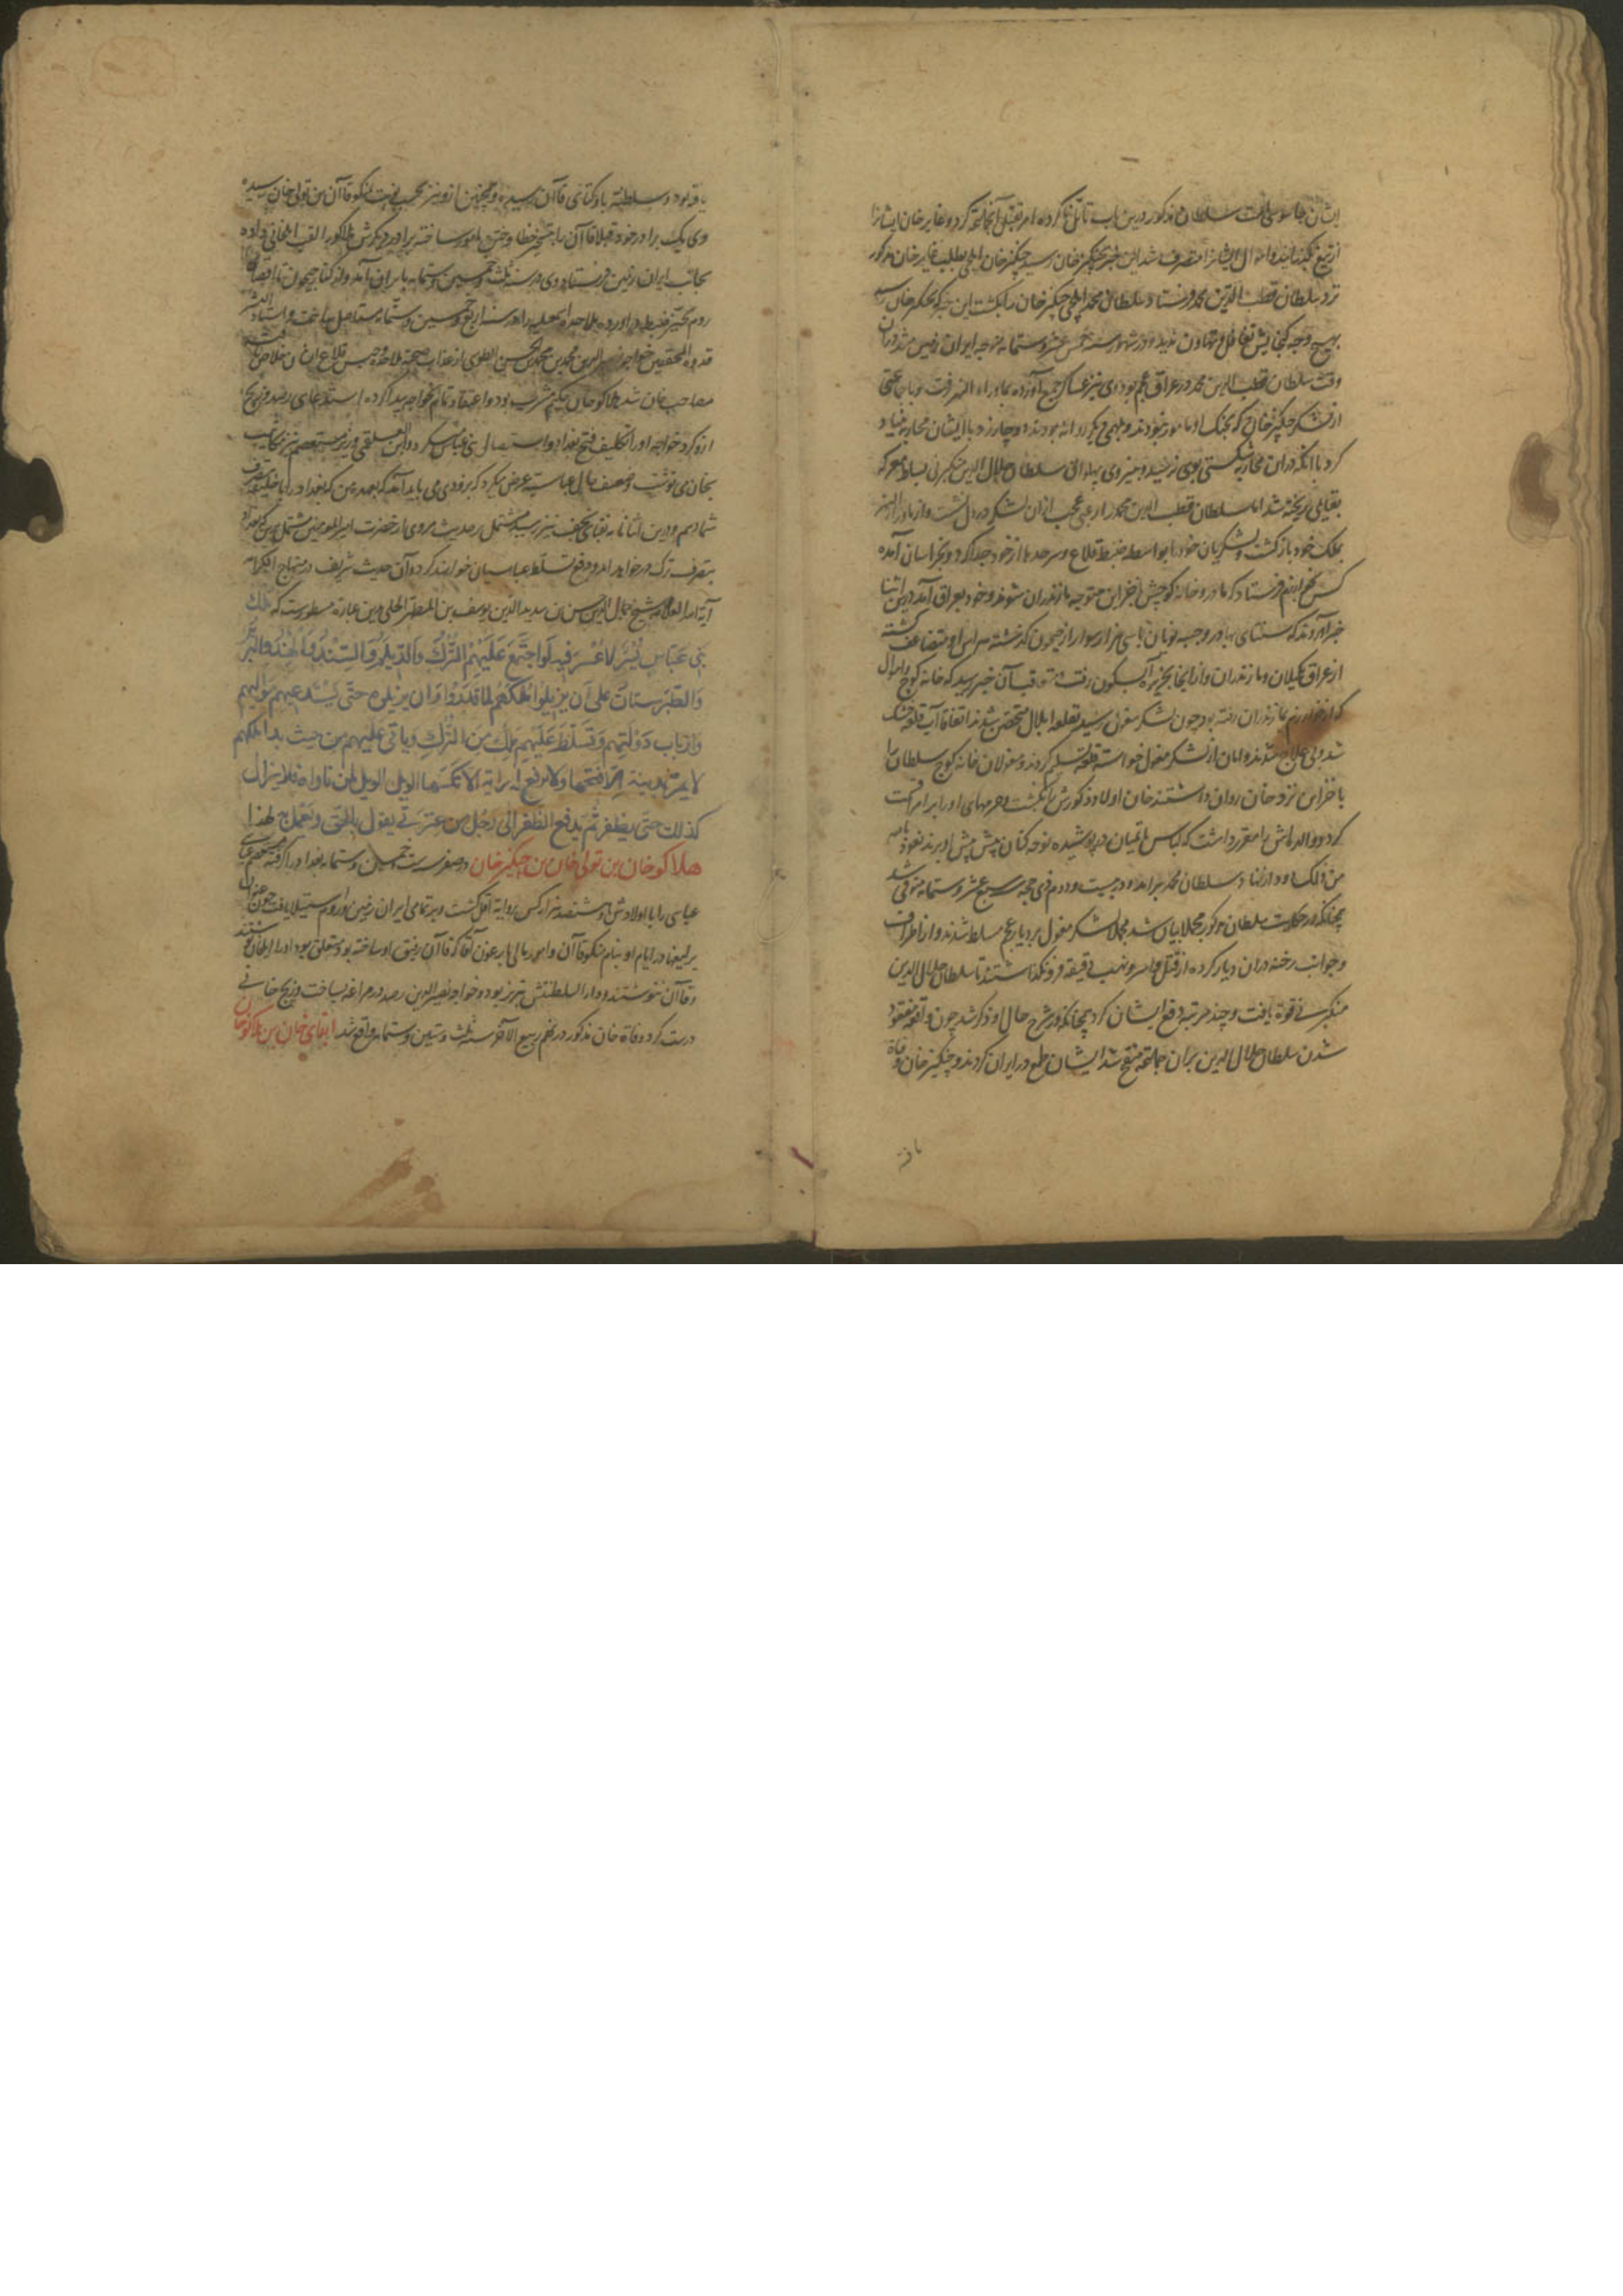 ایشان جاسوسی است سلطان مذکور درین باب تأمل ناکرده امر بقتل آنجماعة کرد و غایر خان ایشانرا
از تیغ گذرانید و اموال ایشانرا متصرف شد این خبر بچنگیز خان رسید چنگیز خان ایلچی بطلب غایر خان مذکور
نزد سلطان قطب الدین محمد فرستاد سلطان محمد ایلچی چنگیز خان را بکشت این خبر که بچنگیز خان رسید
بهیچ وجه گنجایش تغافل و تهاون ندید و در شهور سنه خمس عشر و ستمایه متوجه ایران زمین شد و در آن
وقت سلطان قطب الدین محمد در عراق عجم بود وی نیز عساکر جمع آورده بماوراء النهر رفت و با جماعتی
از لشکر چنگیز خان که بجنگ او مأمور نبودند و بمهمی دیگر روانه بودند دوچار زد با ایشان محاربه بنیاد
کرد با آنکه در آن محاربه شکستی بوی نرسید و به نیروی پهلوانی سلطان جلال الدین منکبرنی بساط معرکه
بقایمی ریخته شد اما سلطان قطب الدین محمد را رعبی عجب از آن لشکر در دل نشست و از ماوراء النهر
بملک خود بازگشت و لشکریان خود را بواسطه ضبط قلاع و سرحدها از خود جدا کرد و بخراسان آمده
کس بخوارزم فرستاد که مادر و خانه کوچش با خزاین متوجه مازندران شوند و خود بعراق آمد درین اثنا
خبر آوردند که سنتای بهادر و جبه نویان با سی هزار سوار از جیحون گذشته هراس او متضاعف گشته
از عراق بگیلان و مازندران و از آنجا بجزیره آبسکون رفت متعاقب آن خبر رسید که خانه کوچ و اموال
که از خوارزم بمازندران رفته بود چون لشکر مغول رسید بقلعه ایلال متحصن شدند اتفاقا آب قلعه خشک
شد و بی علاج شدند و امان از لشکر مغول خواسته قلعه تسلیم کردند و مغولان خانه کوچ سلطان را
با خزاین نزد خان روان داشتند خان اولاد ذکورش بکشت و حرمهای او را بر امرا قسمت
کرد و والده اش را مقرر داشت که لباس ماتمیان در پوشیده نوحه کنان پیش پیش او برند نعوذ بالله
من ذلک و دود از نهاد سلطان محمد برآمد و در بیست و دوم ذی حجه سبع عشر و ستمایه متوفی شد
چنانکه در حکایت سلطان مذکور مجملا بیان شد مجملا لشکر مغول بر دیار عجم مسلط شدند و از اطراف
و جوانب رخنه در آن دیار کرده از قتل و اسر و نهب دقیقه فرو نگذاشتند تا سلطان جلال الدین
منکبرنی قوة یافت و چند مرتبه دفع ایشان کرد چنانکه در شرح حال او ذکر شد چون واقعه مفقود
شدن سلطان جلال الدین بر آن جماعة منقح شد ایشان طمع در ایران کردند و چنگیز خان وفاة
یافته
یافته بود و سلطنة باوکتای قاآن رسیده و همچنین ازو نیز بحسب نوبت بمنکو قاآن بن تولی خان رسیده
وی یک برادر خود قبلا قاآن را بتسخیر خطا و ختن مامور ساخته برادر دیگرش هلاکو را لقب ایلخانی داده
بجانب ایران زمین فرستاد وی در سنه ثلث و خمسین و ستمایه بایران آمد و از کنار جیحون تا اقصای
روم بحیز ضبط درآورده ملاحده اسمعیلیه را در سنه اربع و خمسین و ستمایه مستاصل ساخت و استاد البشر
قدوة المحققین خواجه نصیر الدین محمد بن محمد بن الحسن الطوسی از عذاب صحبت ملاحده و حبس قلاع ایشان خلاص گشته
مصاحب خان شد هلاکو خان حکیم مشرب بود و اعتقاد تمام بخواجه پیدا کرده استدعای رصد و زیج
ازو کرد خواجه او را تکلیف فتح بغداد و استیصال بنی عباس میکرد و ابن العلقمی وزیر مستعصم نیز مکاتیب
بخان می نوشت و ضعف حال عباسیه عرض میکرد که بزودی می باید آمد که بعهده من که بغداد را با خلیفه بتصرف
شما دهم و درین اثنا نامه نقبای نجف نیز رسید مشتمل بر حدیث مروی از حضرت امیر المومنین مشتمل برین که بغداد
بتصرف ترک در خواهد آمد و دفع تسلط عباسیان خواهند کرد و آن حدیث شریف در منهاج الکرامه
آیة الله العلامه شیخ جمال الدین حسن بن سدید الدین یوسف بن المطهر الحلی بدین عبارة مسطورست که ملک
بنی عباس یسر لا عسر فیه لو اجتمع علیهم الترک والدیلم والسند والهند والبربر
والطبرستان علی ان یزیلوا ملکهم لما قدروا ان یزیلوه حتی یشذ عنهم موالیهم
وارباب دولتهم وتسلط علیهم ملک من الترک ویاتی علیهم من حیث بدا ملکهم
لا یمر بمدینة الا فتحها ولا ترفع له رایة الا نکسها الویل الویل لمن ناواه فلا یزال
کذلک حتی یظفر ثم یدفع الظفر الی رجل من عترتی یقول بالحق ویعمل به لهذا
هلاکو خان بن تولی خان بن چنگیز خان در صفر سنه ست خمسین و ستمایه بغداد را گرفته مستعصم عباسی
عباسی را با اولادش و هشتصد هزار کس بروایة اقل کشت و بر تمامی ایران زمین و روم استیلا یافت چون عنوان
یرلیغها در ایام او بنام منکو قاآن و امور مالی بارغون آقا که قاآن رفیق او ساخته بود متعلق بود او را ایلخان نوشتند
و قاآن ننوشتند و دار السلطنتش تبریز بود و خواجه نصیر الدین رصد در مراغه بساخت و زیج خانی
درست کرد و وفاة خان مذکور در نهم ربیع الاخر سنه ثلث و ستین و ستمایه واقع شد ابقای خان بن هلاکو خان